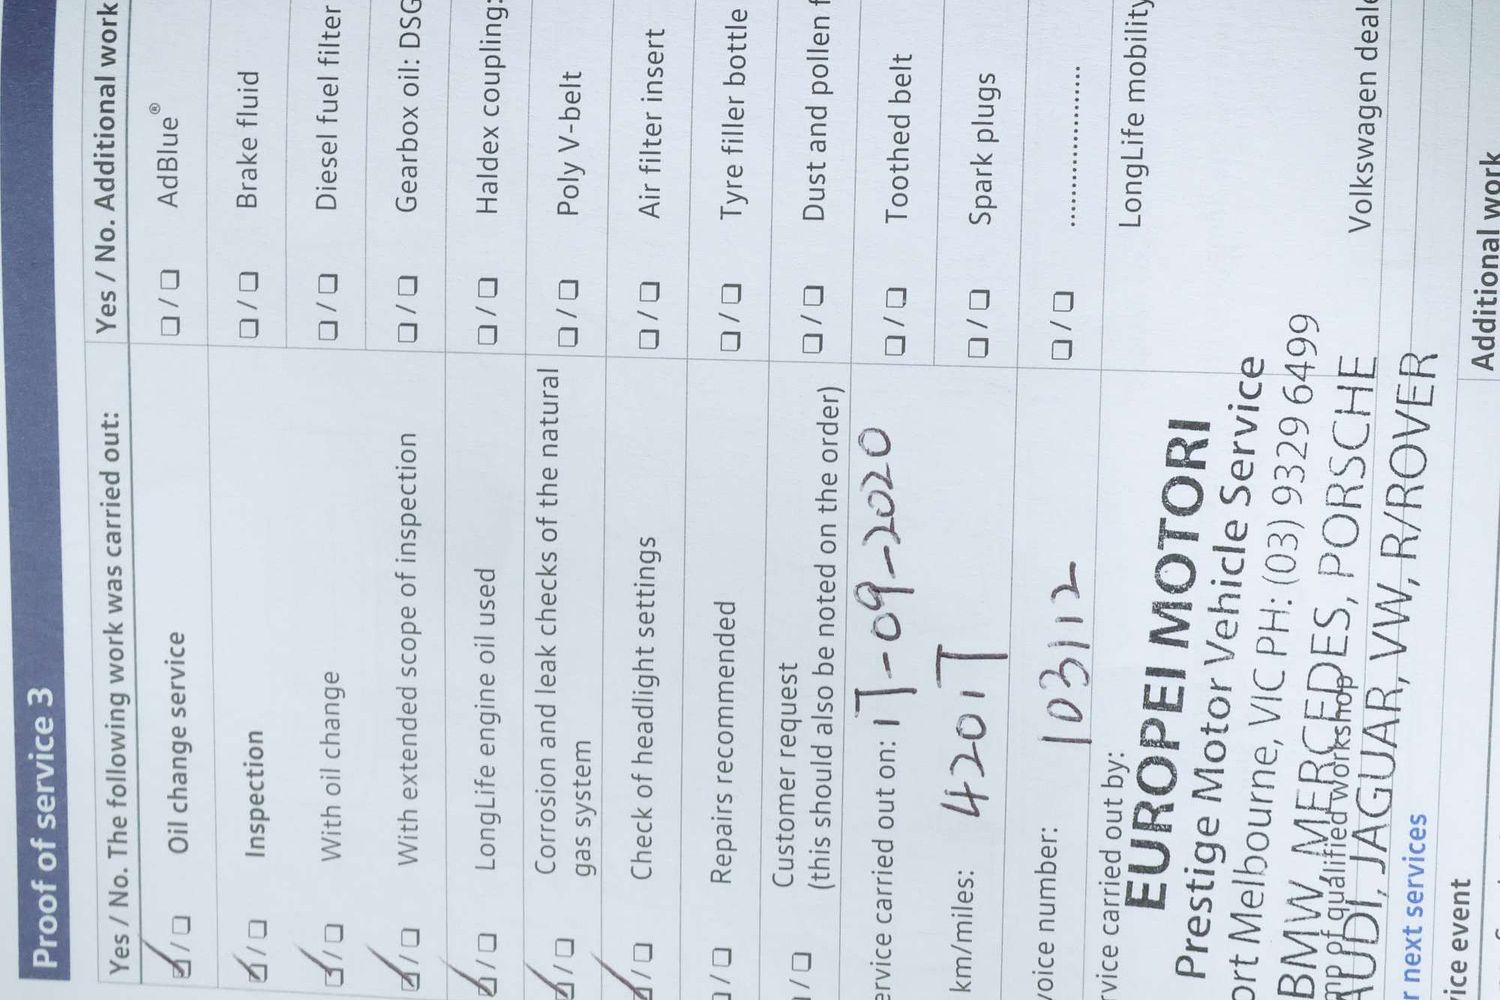 Proof of service 3
Yes / No. The following work was carried out:
Oil change service
Inspection
With oil change
With extended scope of inspection
LongLife engine oil used
Corrosion and leak checks of the natural
gas system
Check of headlight settings
Repairs recommended
Customer request
(this should also be noted on the order)
ervice carried out on: 17-09-2020
km/miles: 42017
voice number: 103112
vice carried out by:
EUROPEI MOTORI
Prestige Motor Vehicle Service
ort Melbourne, VIC PH: (03) 9329 6499
BMW, MERCEDES, PORSCHE
mp of qualified workshop
AUDI, JAGUAR, VW, R/ROVER
r next services
ice event
Yes / No. Additional work
AdBlue®
Brake fluid
Diesel fuel filter
Gearbox oil: DSG
Haldex coupling:
Poly V-belt
Air filter insert
Tyre filler bottle
Dust and pollen f
Toothed belt
Spark plugs
LongLife mobility
Volkswagen deale
Additional work